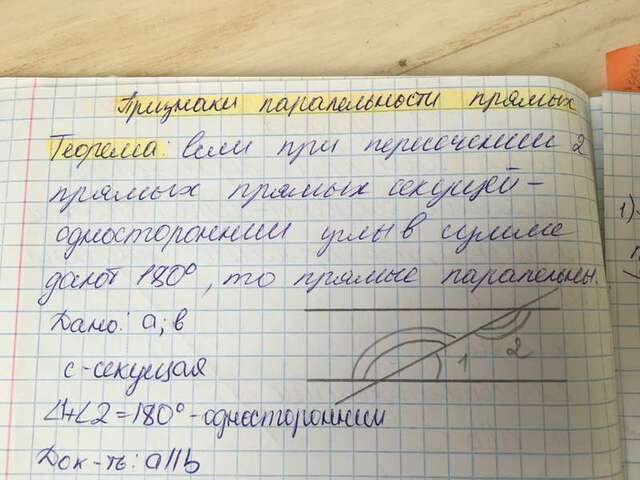 Признаки парапельности прямых
Теорема: если при пересечении 2
прямых прямых секущей-
односторонний углы в сумме
дают 180°, то прямые парапельны.
Дано: a; в
с-секущая
1
2
∠1+∠2=180°-односторонним
Док-ть: a||b
1)